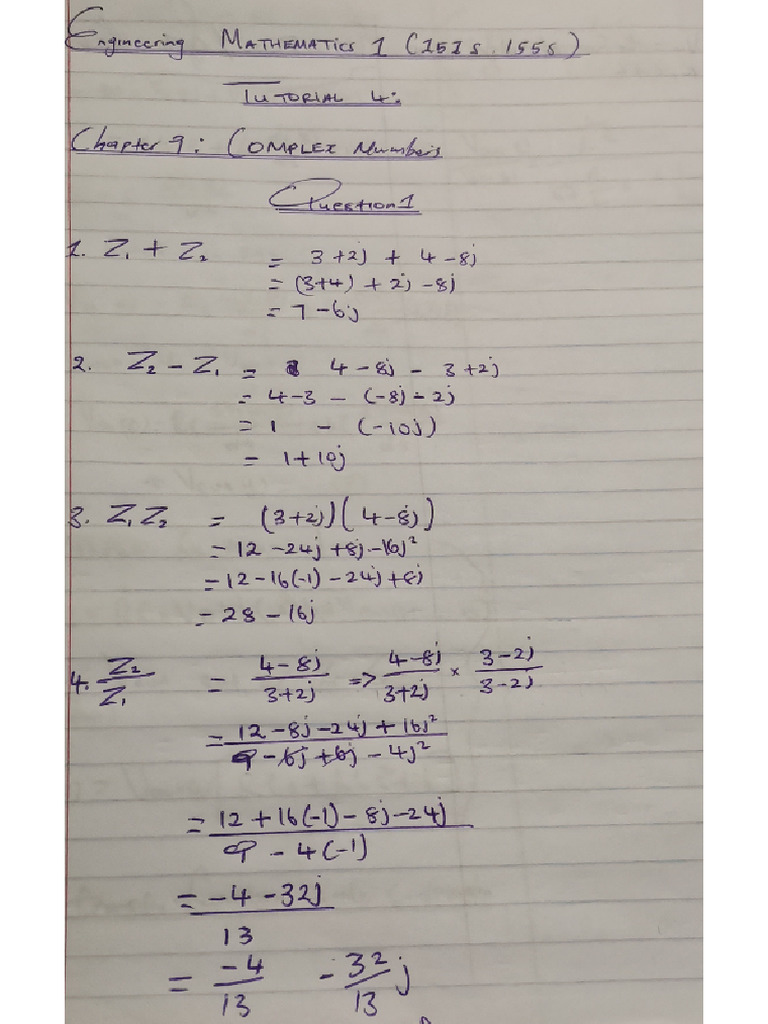 Engineering MATHEMATICS 1 (151s.155s)
TUTORIAL 4:
Chapter 9: COMPLEX Numbers
Question 1
1. Z₁ + Z₂ = 3+2j + 4-8j
= (3+4) + 2j -8j
= 7-6j
2. Z₂ - Z₁ = 4-8j - 3+2j
= 4-3 - (-8j-2j
= 1 - (-10j)
= 1+10j
3. Z₁Z₂ = (3+2j)(4-8j)
= 12 -24j +8j -16j²
= 12-16(-1) -24j+8j
= 28-16j
4. Z₂/Z₁ = (4-8j)/(3+2j) => (4-8j)/(3+2j) × (3-2j)/(3-2j)
= (12-8j-24j+16j²)/(9-6j+6j-4j²)
= (12+16(-1)-8j-24j)/(9-4(-1))
= (-4-32j)/13
= -4/13 - 32/13 j